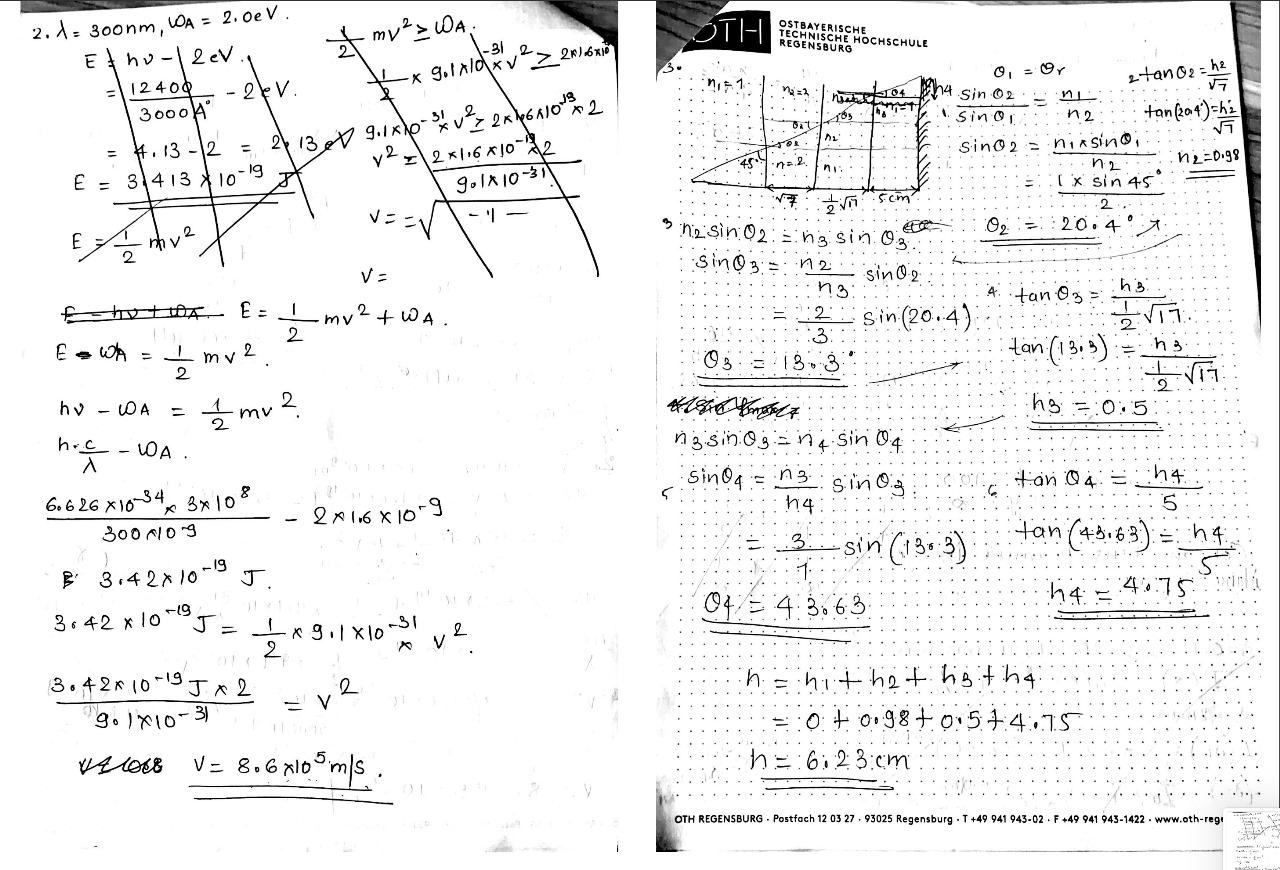 2. λ = 300nm, ωA = 2.0eV.
E = hν - 2eV.
= 12400 / 3000 A° - 2eV.
= 4.13 - 2 = 2.13 eV
E = 3.413 × 10^-19 J
E = 1/2 mv^2
1/2 mv^2 ≥ ωA.
1/2 × 9.1×10^-31 × v^2 ≥ 2×1.6×10
9.1×10^-31 × v^2 ≥ 2×1.6×10^-19 × 2
v^2 = 2×1.6×10^-19 × 2 / 9.1×10^-31
v = = √ - 11 -
v =
E = hν + ωA. E = 1/2 mv^2 + ωA.
E - ωA = 1/2 mv^2.
hν - ωA = 1/2 mv^2.
h·c / λ - ωA.
6.626 ×10^-34 × 3×10^8 / 300 ×10^-9 - 2×1.6×10^-9
3.42×10^-19 J.
3.42 × 10^-19 J = 1/2 × 9.1×10^-31 × v^2.
3.42×10^-19 J × 2 / 9.1×10^-31 = v^2
v = 8.6×10^5 m/s.
OTH
OSTBAYERISCHE
TECHNISCHE HOCHSCHULE
REGENSBURG
3.
n1=1 n2=2 θ4 h4
θ3
θ2 n2
45° n=2 n1
√7 1/2 √17 5cm
θ1 = θr
1. sinθ2 / sinθ1 = n1 / n2
sinθ2 = n1 × sinθ1 / n2
= 1 × sin 45° / 2.
θ2 = 20.4°
2 tanθ2 = h2 / √7
tan(20.4°) = h2 / √7
h2 = 0.98
3 n2 sinθ2 = n3 sinθ3
sinθ3 = n2 / n3 sinθ2
= 2 / 3 sin(20.4)
θ3 = 13.3°
4 tanθ3 = h3 / 1/2 √17.
tan(13.3) = h3 / 1/2 √17
h3 = 0.5
n3 sinθ3 = n4 sinθ4
5 sinθ4 = n3 / n4 sinθ3
= 3 / 1 sin(13.3)
θ4 = 43.63
6 tanθ4 = h4 / 5
tan(43.63) = h4 / 5
h4 = 4.75
h = h1 + h2 + h3 + h4
= 0 + 0.98 + 0.5 + 4.75
h = 6.23 cm
OTH REGENSBURG · Postfach 12 03 27 · 93025 Regensburg · T +49 941 943-02 · F +49 941 943-1422 · www.oth-rege